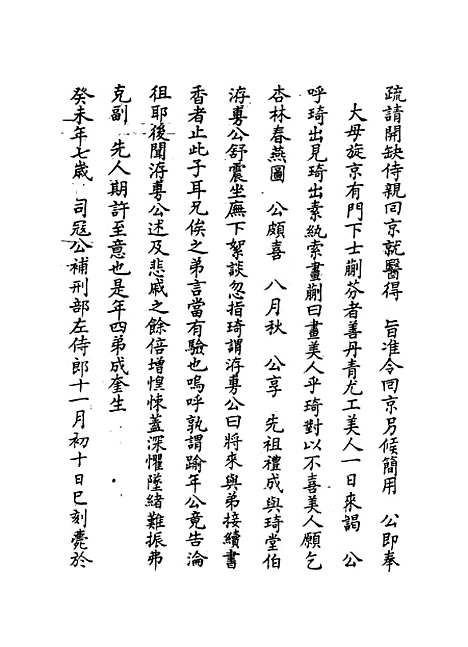 疏請開缺侍親回京就醫得　旨准令回京另候簡用　公即奉
大母旋京有門下士蒯芬者善丹青尤工美人一日來謁　公
呼琦出見琦出素紈索畫蒯曰畫美人乎琦對以不喜美人願乞
杏林春燕圖　公頗喜　八月秋　公享　先祖禮成與琦堂伯
洊專公舒震坐廡下絮談忽指琦謂洊專公曰將來與弟接續書
香者止此子耳兄俟之弟言當有驗也嗚呼孰謂踰年公竟告淪
徂耶後聞洊專公述及悲戚之餘倍增惶悚蓋深懼墜緒難振弗
克副　先人期許至意也是年四弟成奎生
癸未年七歲　司寇公補刑部左侍郎十一月初十日巳刻薨於